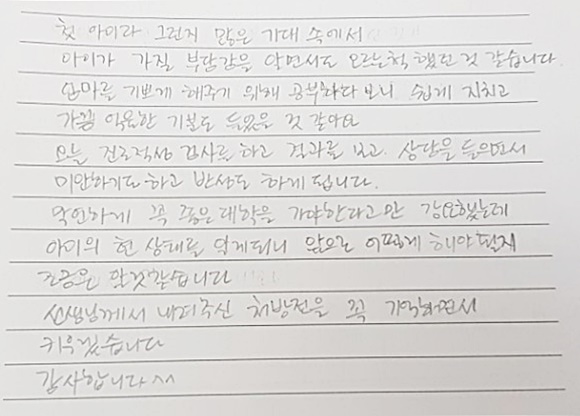 첫 아이라 그런지 많은 기대 속에서
아이가 가질 부담감을 알면서도 모르는척 했던 것 같습니다.
엄마를 기쁘게 해주기 위해 공부하다 보니 쉽게 지치고
가끔 억울한 기분도 들었을 것 같아요
오늘 진로적성 검사를 하고 결과를 보고 상담을 들으면서
미안하기도 하고 반성도 하게 됩니다.
막연하게 꼭 좋은 대학을 가야한다고만 강요했는데
아이의 현 상태를 알게되니 앞으로 어떻게 해야 될지
조금은 알것 같습니다
선생님께서 내려주신 처방전을 꼭 기억하면서
키우겠습니다
감사합니다^^